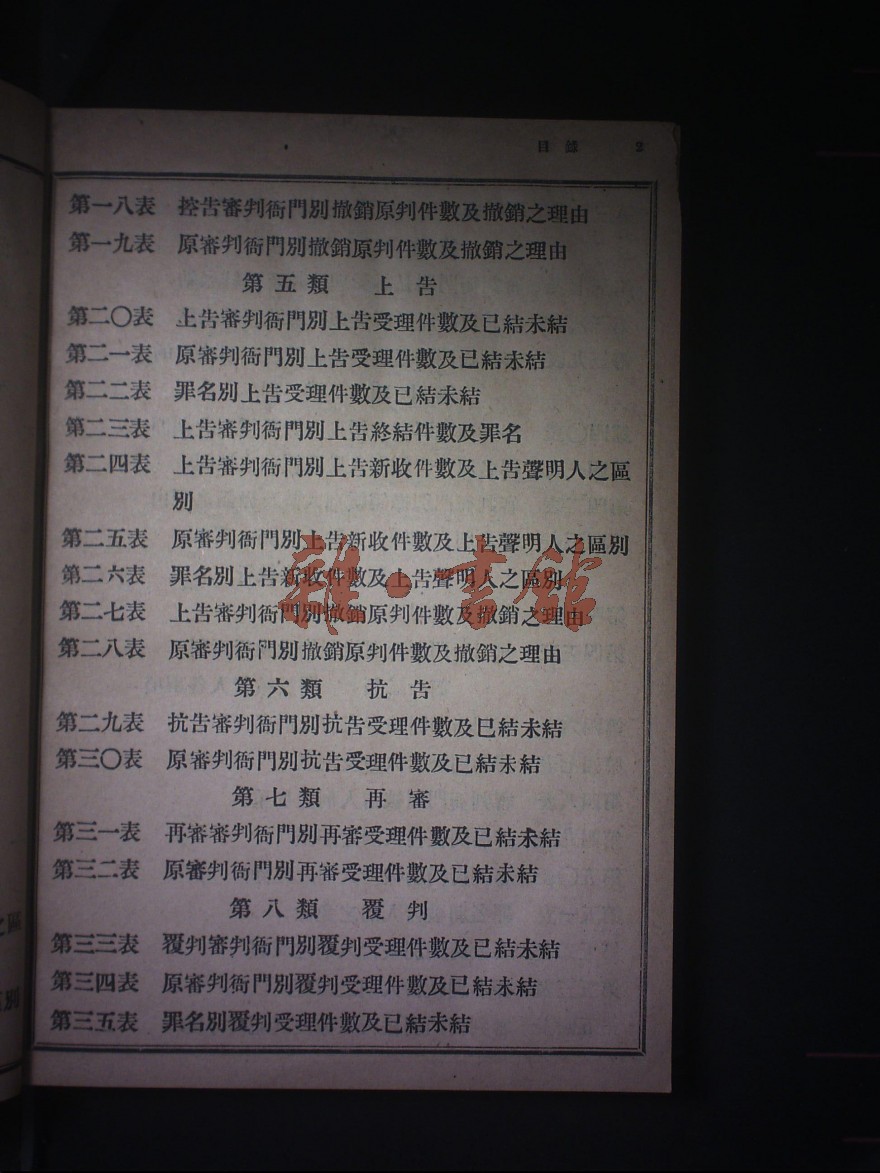 目錄 2
第一八表 控告審判衙門別撤銷原判件數及撤銷之理由
第一九表 原審判衙門別撤銷原判件數及撤銷之理由
第五類 上告
第二〇表 上告審判衙門別上告受理件數及已結未結
第二一表 原審判衙門別上告受理件數及已結未結
第二二表 罪名別上告受理件數及已結未結
第二三表 上告審判衙門別上告終結件數及罪名
第二四表 上告審判衙門別上告新收件數及上告聲明人之區
別
第二五表 原審判衙門別上告新收件數及上告聲明人之區別
第二六表 罪名別上告新收件數及上告聲明人之區別
第二七表 上告審判衙門別撤銷原判件數及撤銷之理由
第二八表 原審判衙門別撤銷原判件數及撤銷之理由
第六類 抗告
第二九表 抗告審判衙門別抗告受理件數及已結未結
第三〇表 原審判衙門別抗告受理件數及已結未結
第七類 再審
第三一表 再審審判衙門別再審受理件數及已結未結
第三二表 原審判衙門別再審受理件數及已結未結
第八類 覆判
第三三表 覆判審判衙門別覆判受理件數及已結未結
第三四表 原審判衙門別覆判受理件數及已結未結
第三五表 罪名別覆判受理件數及已結未結
雜·書館